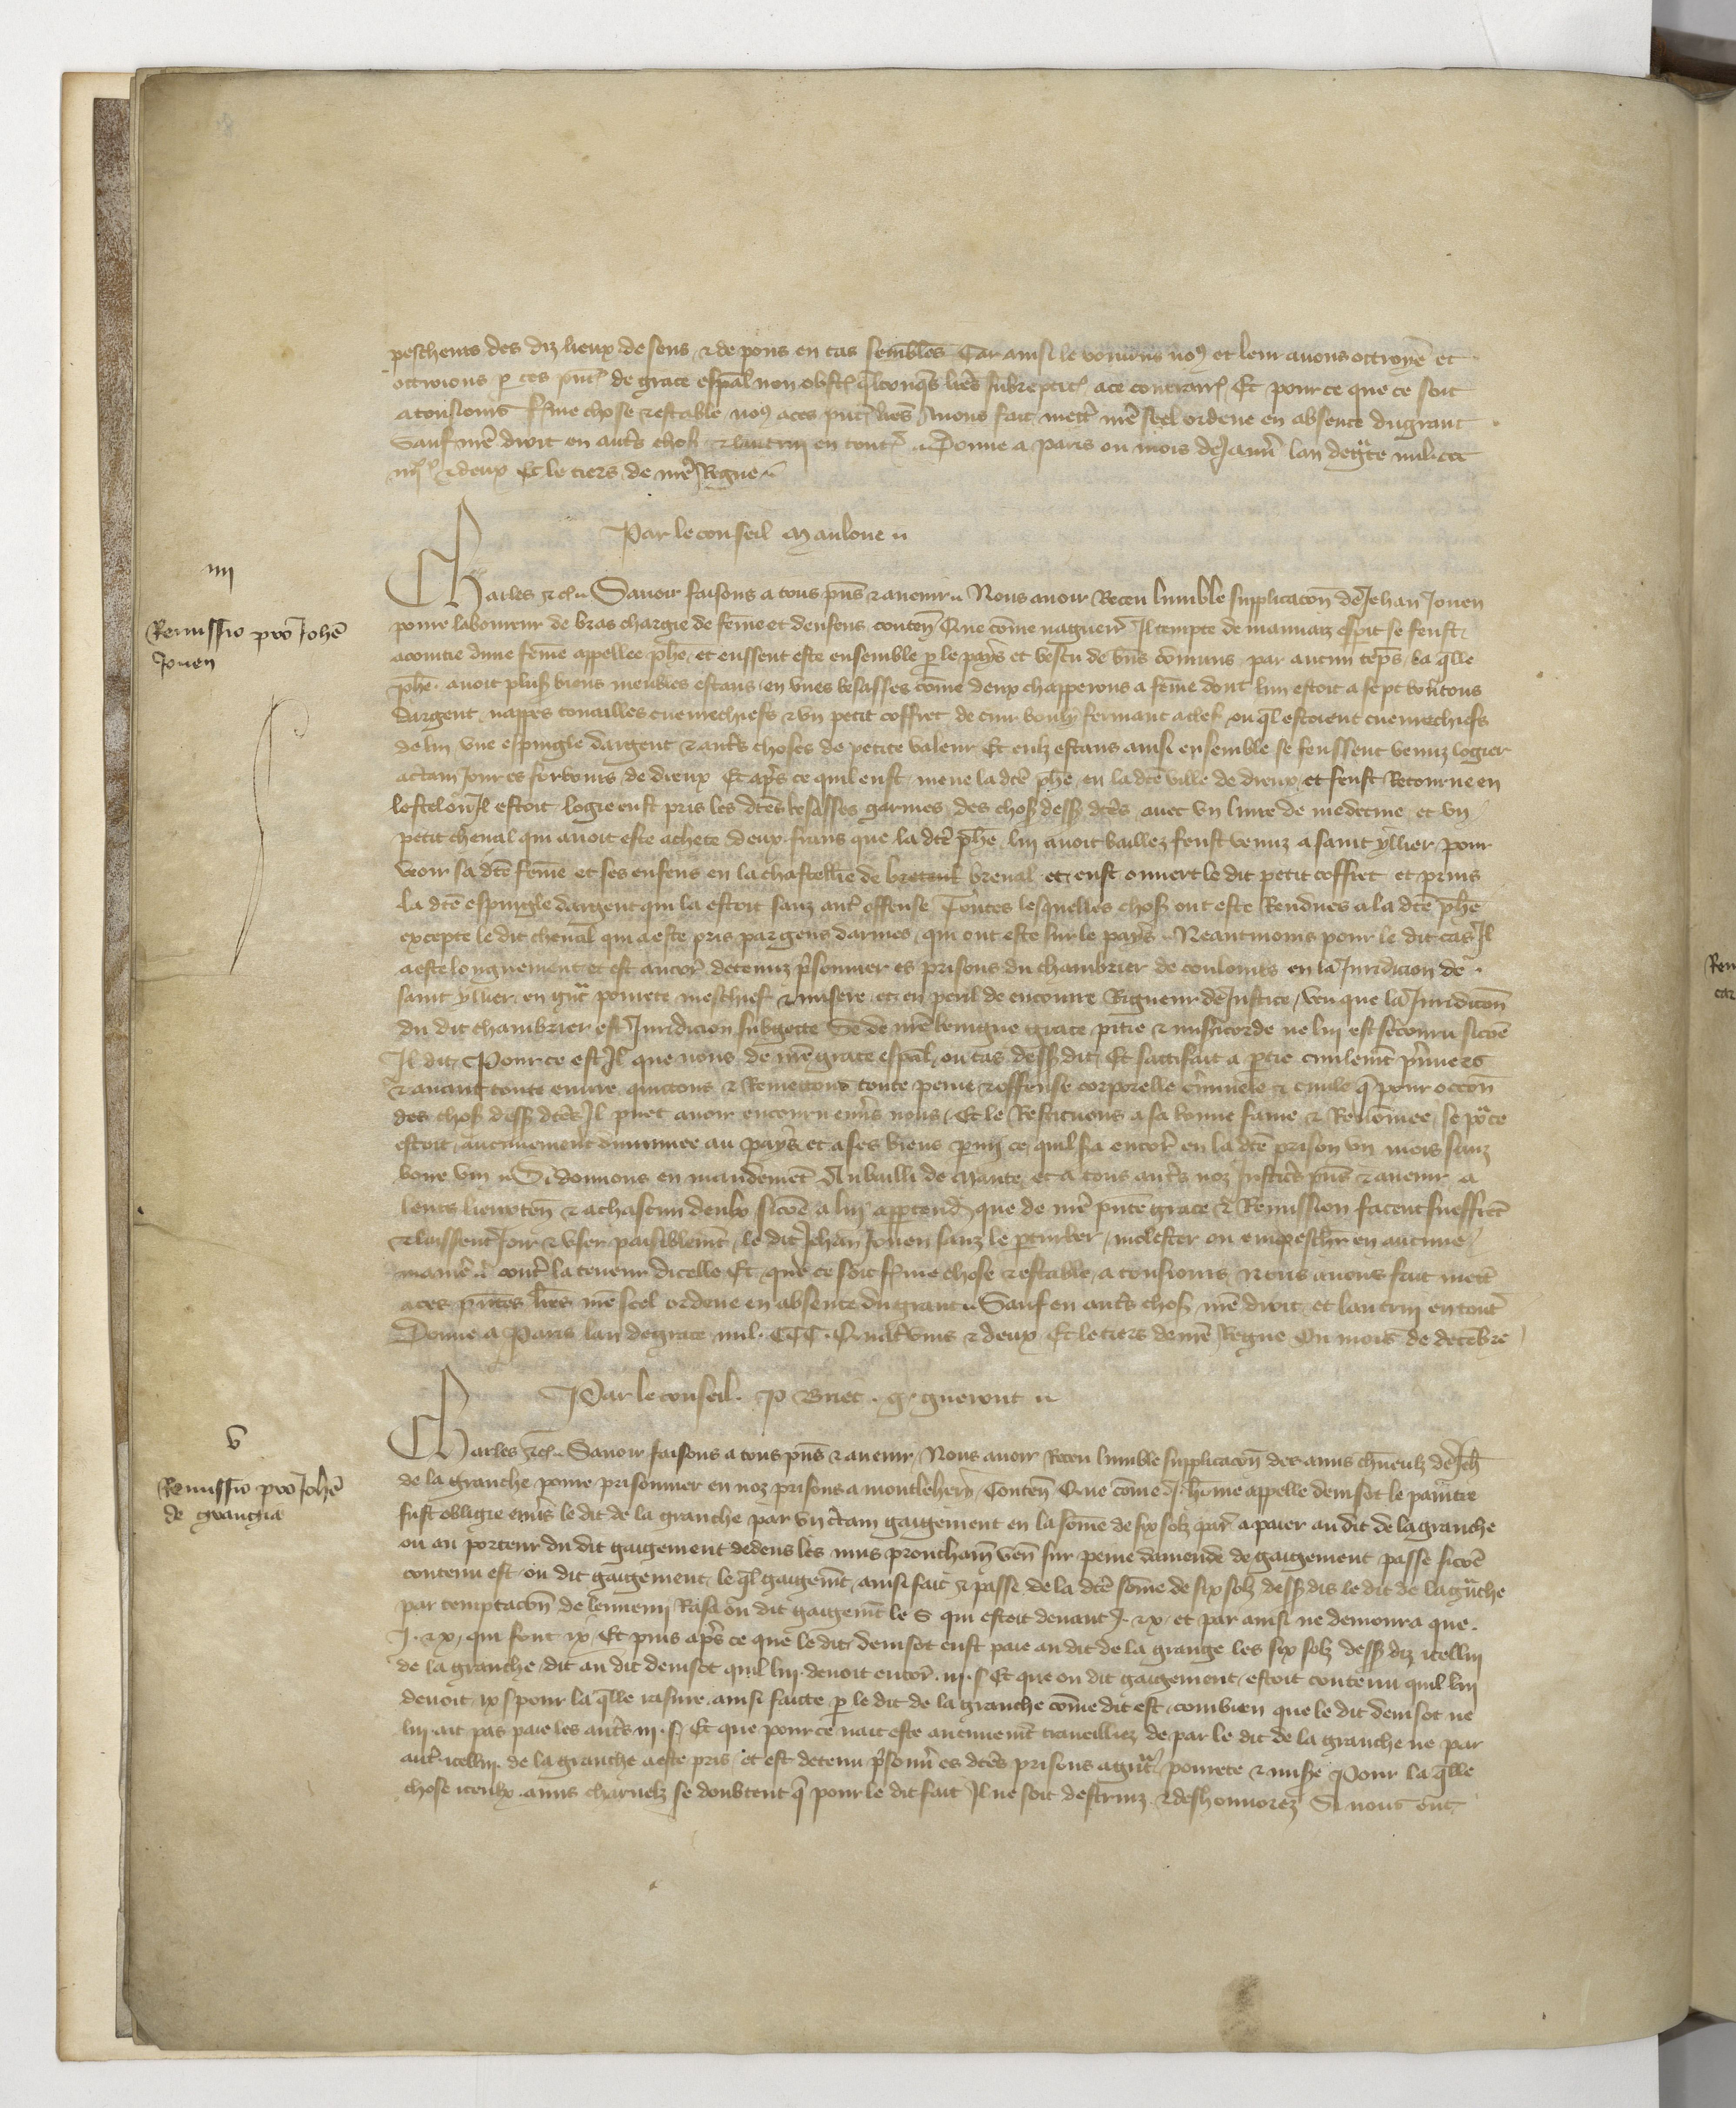 peschemens des diz lieux de sens et de pons en cas semblēs Car ainsi le voulons noꝰ et leur avons ottroyé et
ottroions p ces pn̄t de grace esp̄al non obst̄ q̄lconq̄s lr̄es subreptic̄ a ce contrair̄ Et pour ce que ce soit
a tousiours f̄me chose et estable noꝰ a ces pn̄t lr̄es avons fait mett̄ nr̄e seel ordene en absence du grant
Sauf nr̄e droit en aut̄s chos̄ et lautrui en tout̄ Donne a Paris ou mois de Janv̄ lan de gr̄ce mil ccc
iiii et deux Et le tiers de nr̄e Regne
Par le conseil Mauloue
iiii
Remissio pro Joh̄e
Jouen
Charles etc̄ Savoir faisons a tous pn̄s et avenir Nous avoir Receu lumble supplicacōn de Jehan Jouen
povre laboureur de bras chargie de fem̄e et denfens conten̄ Que com̄e naguer̄ Il tempte de mauvaiz esp̄it se feust
acointie dune fem̄e appellee ph̄e et eussent este ensemble p le pays et vescu de b̄ns com̄uns par aucun temps La q̄lle
ph̄e avoit plus̄ biens meubles estans en unes besasses com̄e deux chapperons a fem̄e dont lun estoit a sept boutons
dargent nappes touailles cuevrechiefs et un petit coffret de cuir bouly fermant a clef ou q̄l estoient cuevrechiefs
de lin une espingle dargent et aut̄s choses de petite valeur Et eulz estans ainsi ensemble se feussent venuz logier
a c̄tain Jour es forbours de Dreux Et ap̄s ce quil eust mene la dc̄e ph̄e en la dc̄e ville de Dreux et feust Retourne en
lostel ou Il estoit logie eust pris les dc̄es besasses garnies des chos̄ dess̄ dc̄es avec un livre de medecine et un
petit cheval qui avoit este achete deux frans que la dc̄e ph̄e lui avoit baillez feust venuz a saint yllier pour
veoir sa dc̄e fem̄e et ses enfens en la chastellie de breteul breval et eust ouvert le dit petit coffret et prins
la dc̄e espingle dargent qui la estoit sanz aut̄ offense Toutes lesquelles chos̄ ont este Rendues a la dc̄e ph̄e
excepte le dit cheval qui a este pris par gens darmes qui ont este sur le pays Neantmoins pour le dit cas Il
a este longuement et est ancor̄ detenuz p̄sonnier es prisons du chambrier de coulombs en la Juridicion de
saint yllier en gr̄t povrete meschief et misere et en peril de encourre Rigueur de Justice veu que la Juridicōn
du dit chambrier est Juridicion subgette Se de nr̄e benigne grace pitie et mis̄icorde ne lui est secouru sicom̄e
Il dit Pour ce est Il que nous de nr̄e grace esp̄al ou cas dess̄ dit Et sattifait a p̄tie civilem̄t p̄miers
et avant toute euvre quittons et Remettons toute peine et offense corporelle c̄minele et civile q̄ pour occōn
des chos̄ dess̄ dc̄es Il puet avoir encouru env̄s nous Et le Restituons a sa bonne fame et Renom̄ee se po̅ ce
estoit aucunement diminuee au pays et a ses biens p̄mi ce quil s̄a encor̄ en la dc̄e prison un mois sanz
boire vin Si donnons en mandem̄t Au bailli de Mante et a tous aut̄s noz Justic̄s pn̄s et avenir a
leurs lieuxten̄ et a chascun deulx sicom̄e a lui app̄tend̄ que de nr̄e pn̄te grace et Remission facent sueffrēt
et laissent Joir et user paisiblem̄t le dit Jehan Jouen sanz le p̄turber molester ou empeschier en aucune
manier̄ cont̄ la teneur dicelle Et que ce soit f̄me chose et estable a tousiours Nous avons fait mett̄
a ces pn̄tes lr̄es nr̄e seel ordene en absence du grant Sauf en aut̄s chos̄ nr̄e droit et lautrui en tout̄
Donne a Paris lan de grace mil CCC Quat̄ vins et deux Et le tiers de nr̄e Regne Ou mois de decembre
Par le conseil P Briet g gueront
v
Remissio pro Joh̄e
de granchia
Charles etc̄ Savoir faisons a tous pn̄s et avenir Nous avoir Receu lumble supplicacōn des amis ch̄nēulz de Jeh̄
de la granche povre prisonnier en noz prisons a montleheri Conten̄ Que com̄e J hom̄e appelle denisot le paintre
fust obligie env̄s le dit de la granche par un c̄tain gaigement en la som̄e de six solz par̄ a paier au dit de la granche
ou au porteur du dit gaigement dedens les nuis prouchain̄ ven̄ sur peine damende de gaigement passe sicom̄e
contenu est ou dit gaigement le q̄l gaigem̄t ainsi fait et passe de la dc̄e som̄e de six solz dess̄ dis le dit de la gr̄che
par temptacōn de lennemi Rasa ou dit gaigem̄t le s qui estoit devant J et x et par ainsi ne demoura que
J et x qui font ix Et puis ap̄s ce que le dit denisot eust paie au dit de la grange les six solz dess̄ diz icellui
de la granche dit au dit denisot quil lui devoit encor̄ iii s Et que ou dit gaigement estoit contenu quil lui
devoit ix s pour la q̄lle rasure ainsi faicte p le dit de la granche com̄e dit est combien que le dit denisot ne
lui ait pas paie les aut̄s iii s Et que pour ce nait este aucunem̄t traveilliez de par le dit de la granche ne par
aut̄ icellui de la granche a este pris et est detenu p̄sonn̄ es dc̄es prisons a gr̄t povrete et mis̄e Pour la q̄lle
chose iceulx amis charnelz se doubtent q̄ pour le dit fait Il ne soit destruiz et deshonnorez Si nous ont